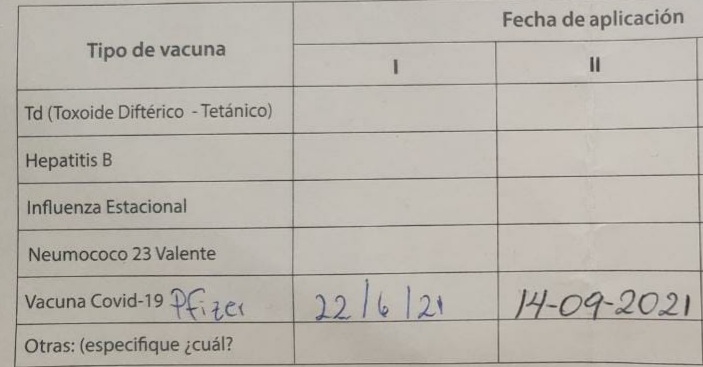 Tipo de vacuna
Fecha de aplicación
I
II
Td (Toxoide Diftérico - Tetánico)
Hepatitis B
Influenza Estacional
Neumococo 23 Valente
Vacuna Covid-19 Pfizer 22/6/21 14-09-2021
Otras: (especifique ¿cuál?